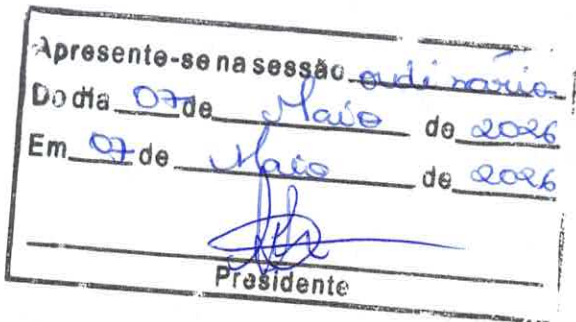 Apresente-se na sessão ordinária
Do dia 07 de Maio de 2026
Em 07 de Maio de 2026
Presidente